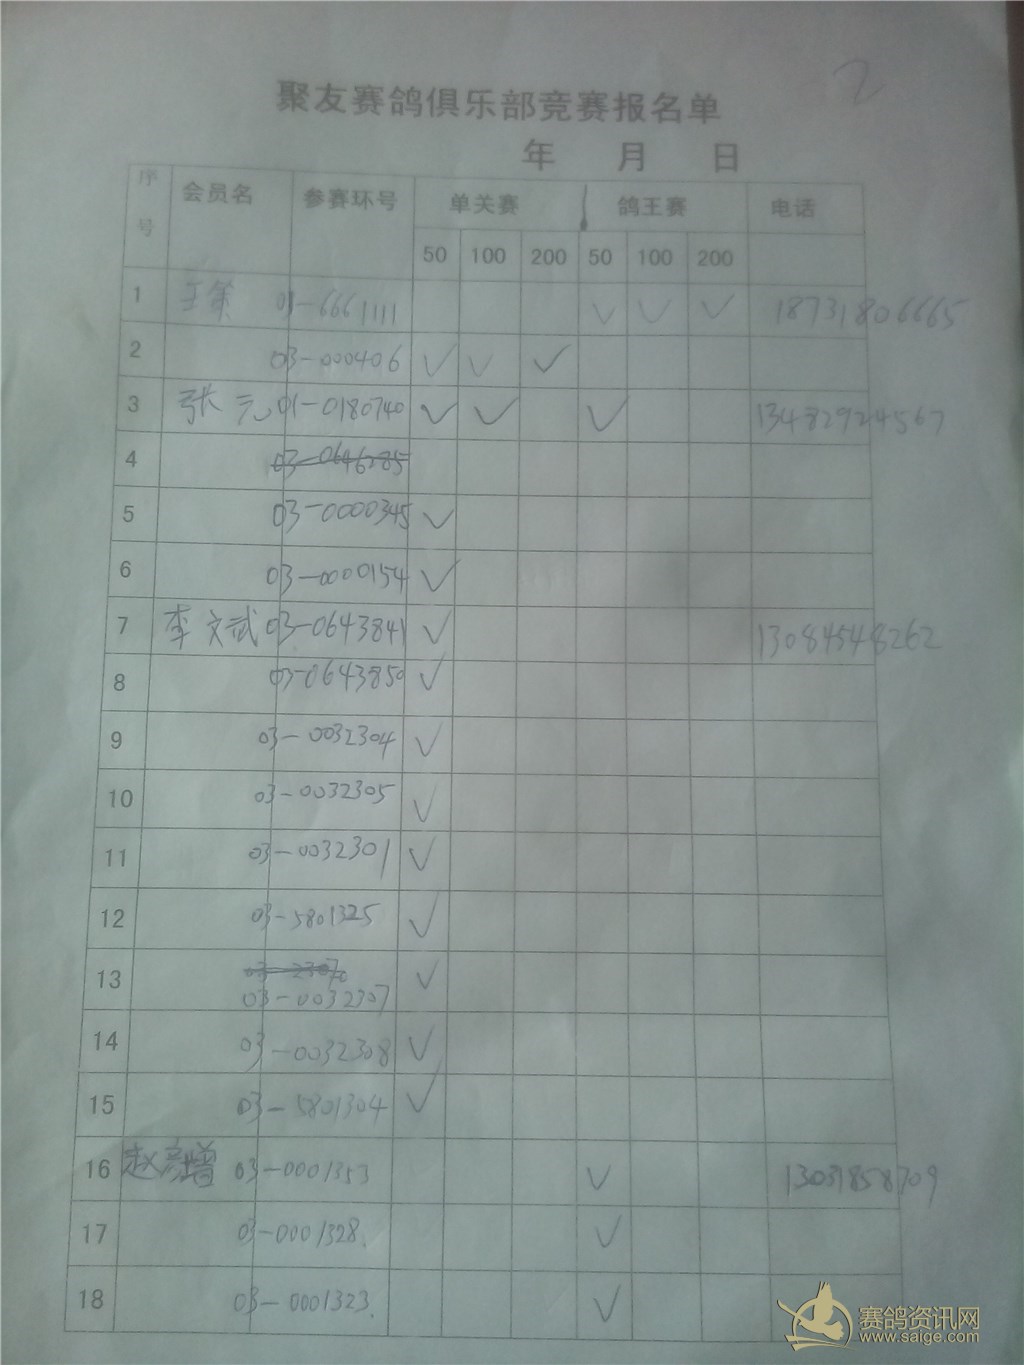 2
聚友赛鸽俱乐部竞赛报名单
年 月 日
序号 会员名 参赛环号 单关赛 鸽王赛 电话
50 100 200 50 100 200
1 01-6661111 ✓ ✓ ✓ 18731806665
2 03-000406 ✓ ✓ ✓
3 张元 01-0180740 ✓ ✓ ✓ 13482924567
4 03-0646285
5 03-0000345 ✓
6 03-0000154 ✓
7 李文斌 03-0643841 ✓ 13084548262
8 03-0643850 ✓
9 03-0032304 ✓
10 03-0032305 ✓
11 03-0032301 ✓
12 03-5801325 ✓
13 03-0032307 ✓
14 03-0032308 ✓
15 03-5801304 ✓
16 赵彦增 03-0001353 ✓
17 03-0001328. ✓
18 03-0001323. ✓
赛鸽资讯网
www.saige.com